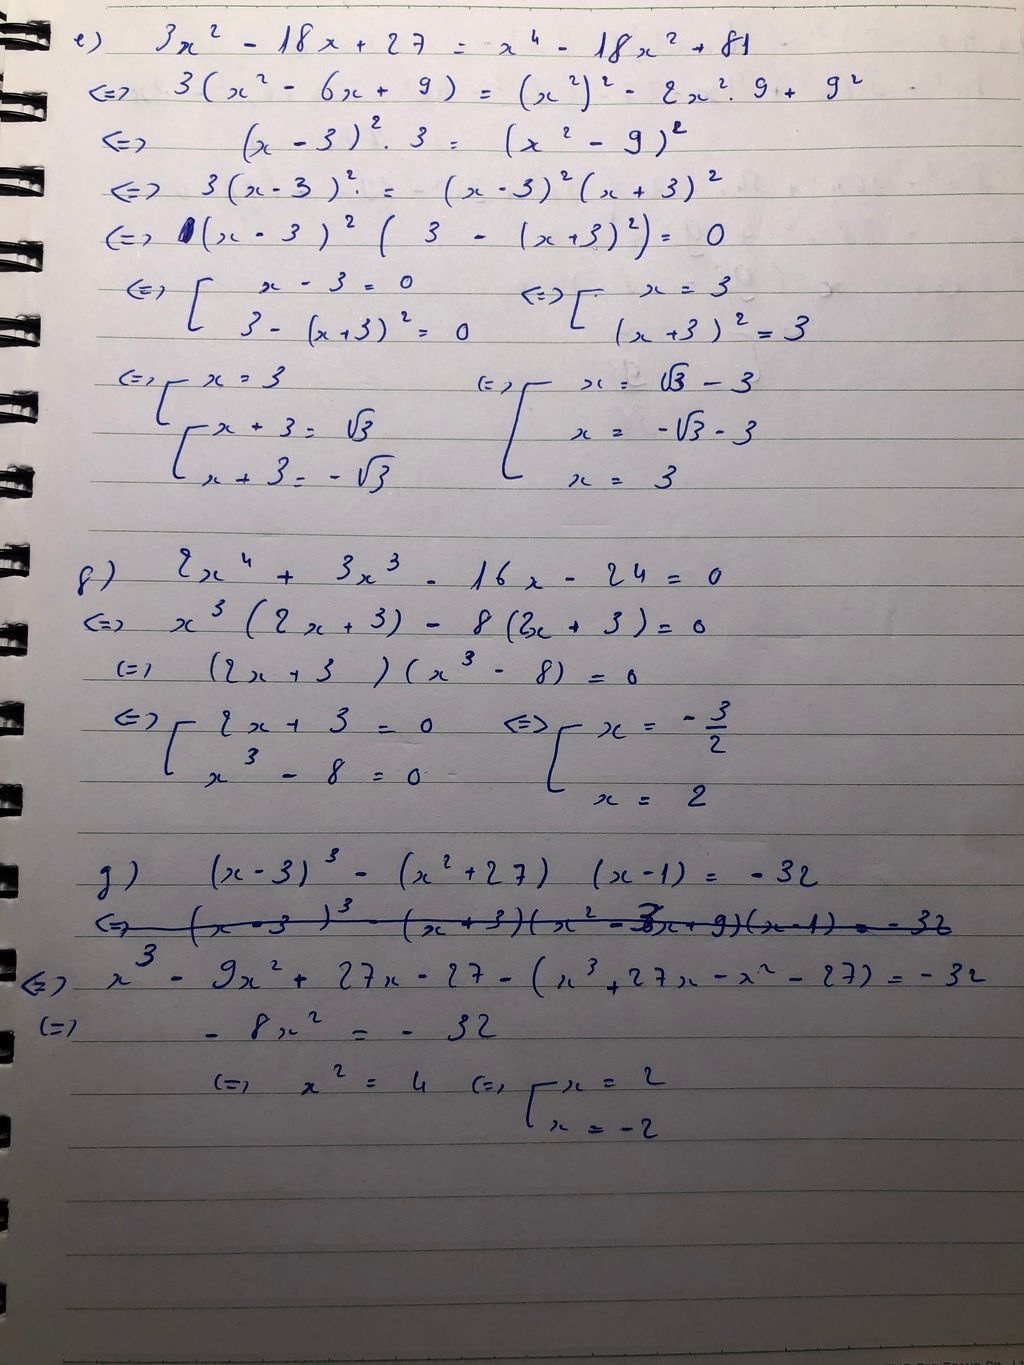 e) 3x² - 18x + 27 = x⁴ - 18x² + 81
<=> 3(x² - 6x + 9) = (x²)² - 2x². 9 + 9²
<=> (x - 3)². 3 = (x² - 9)²
<=> 3(x - 3)². = (x - 3)²(x + 3)²
<=> (x - 3)² ( 3 - (x+3)²) = 0
<=> [ x - 3 = 0 <=> [ x = 3
3 - (x+3)² = 0 (x+3)² = 3
<=> [ x = 3 <=> [ x = √3 - 3
[ x + 3 = √3 x = -√3 - 3
x + 3 = -√3 x = 3
f) 2x⁴ + 3x³ - 16x - 24 = 0
<=> x³ (2x + 3) - 8 (2x + 3) = 0
<=> (2x + 3 ) (x³ - 8) = 0
<=> [ 2x + 3 = 0 <=> [ x = -3/2
x³ - 8 = 0 x = 2
g) (x - 3)³ - (x² + 27) (x - 1) = - 32
<=> (x - 3)³ - (x + 3)(x² - 3x + 9)(x - 1) = - 32
<=> x³ - 9x² + 27x - 27 - (x³ + 27x - x² - 27) = - 32
<=> - 8x² = - 32
<=> x² = 4 <=> [ x = 2
x = -2